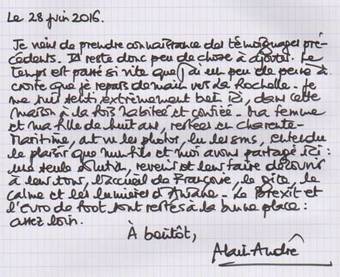 Le 28 juin 2016.
Je viens de prendre connaissance des témoignages pré-
cédents. Il reste donc peu de chose à ajouter. Le
temps est passé si vite que j'ai un peu de peine à
croire que je repars demain vers La Rochelle. Je
me suis senti extrêmement bien ici, dans cette
maison à la fois habitée et confiée. Ma femme
et ma fille de huit ans, restées en Charente-
Maritime, ont vu les photos, lu les sms, entendu
le plaisir que mon fils et moi avons partagé ici :
une seule solution, revenir et leur faire découvrir
à leur tour, l'accueil de Françoise, le gîte, le
calme et les lumières d'Aniane. Le Brexit et
l'Euro de foot sont restés à la bonne place :
assez loin.
À bientôt,
Alain André